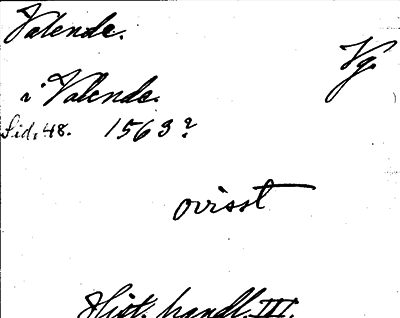 Valende.
Vg.
i Valende.
Sid. 48. 1563?
ovisst
Hist. handl. III.